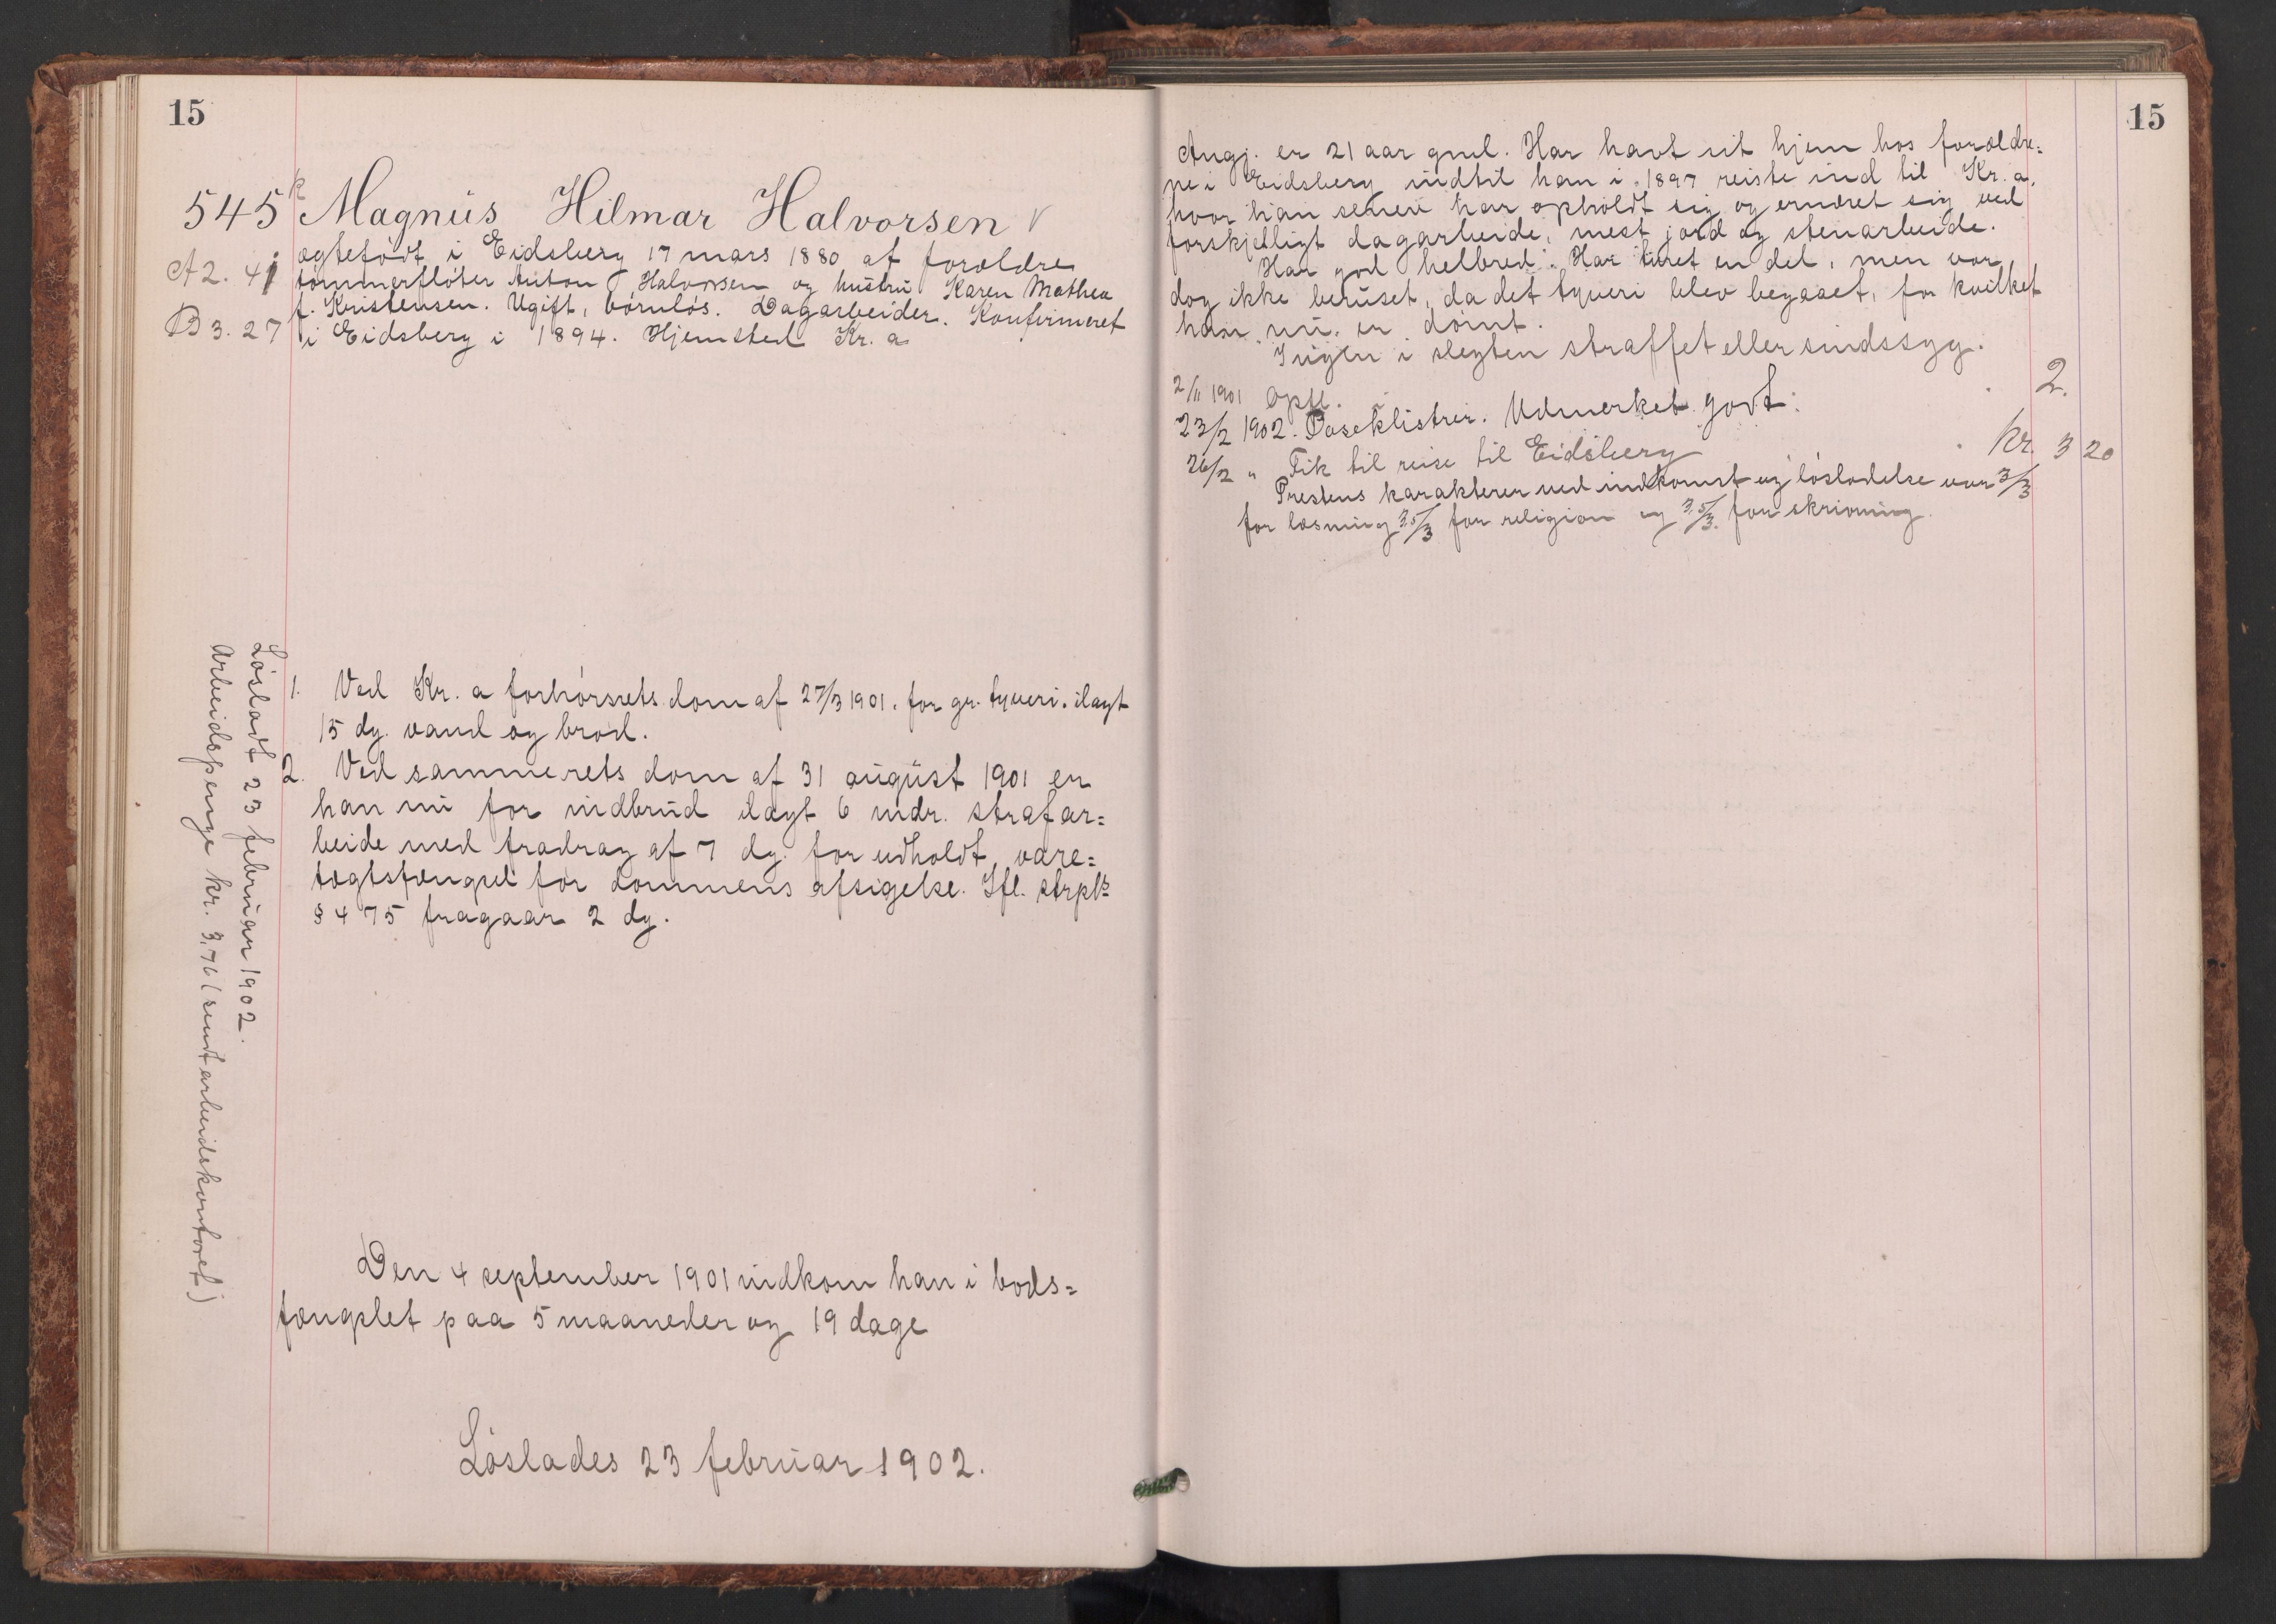 15
545 k Magnus Hilmar Halvorsen √
ægtefødt i Eidsberg 17 mars 1880 af forældre
A 2. 41 tømmerfløter Anton Halvorsen og hustru Karen Mathea
f. Kristensen. Ugift, børnløs. Dagarbeider. Konfirmeret
B 3. 27 i Eidsberg i 1894. Hjemsted Kr. a
1. Ved Kr. a forhørsrets dom af 27/3 1901. for gr. tyveri. ilagt
15 dg. vand og brød.
2. Ved sammerets dom af 31 august 1901 er
han nu for indbrud ilagt 6 mdr. strafar=
beide med fradrag af 7 dg. for udholdt vare=
tægtsfængsel før dommens afsigelse. Ifl. strpls
§ 475 fragaar 2 dg.
Løsladt 23 februar 1902.
Arbeidspenge kr. 3,76 (sendt arbeidskontoret)
Den 4 september 1901 indkom han i bods=
fængslet paa 5 maaneder og 19 dage
Løslades 23 februar 1902.
15
Angj. er 21 aar gml. Har havt sit hjem hos forældre=
ne i Eidsberg indtil han i 1897 reiste ind til Kr. a,
hvor han senere har opholdt sig og ernæret sig ved
forskjelligt dagarbeide, mest jord og stenarbeide.
Har god helbred. Har turet en del, men var
dog ikke beruset, da det tyveri blev begaaet, for hvilket
han nu er dømt.
Ingen i slegten straffet eller sindssyg.
2/11 1901 Opfl. 2.
23/2 1902. Poseklistrer. Udmerket godt.
26/2 " Fik til reise til Eidsberg kr. 3 20
Prestens karakterer ved indkomst og løsladelse var 3/3
for læsning 3,5/3 for religion og 3,5/3. for skrivning.